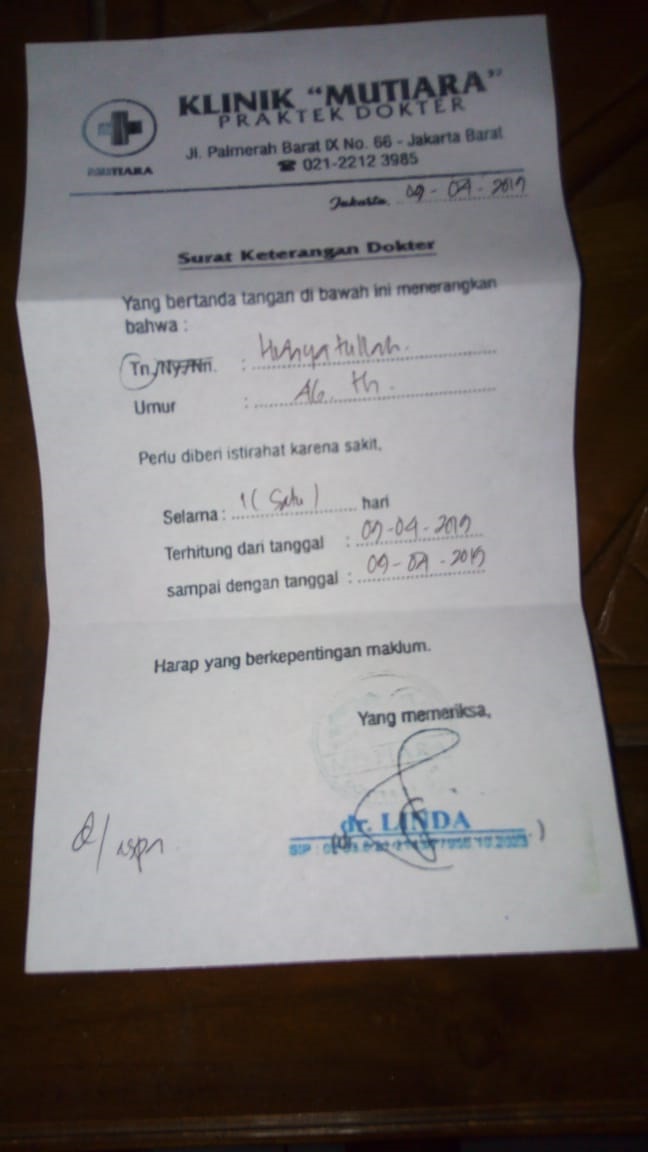 KLINIK "MUTIARA"
PRAKTEK DOKTER
Jl. Palmerah Barat IX No. 66 - Jakarta Barat
☎ 021-2212 3985
MUTIARA
Jakarta, 09 - 04 - 2019
Surat Keterangan Dokter
Yang bertanda tangan di bawah ini menerangkan
bahwa :
Tn./Ny./Nn. :
Umur : 46 th.
Perlu diberi istirahat karena sakit,
Selama : 1 (Satu) hari
Terhitung dari tanggal : 09-04-2019
sampai dengan tanggal : 09-04-2019
Harap yang berkepentingan maklum.
Yang memeriksa,
dr. LINDA
SIP :